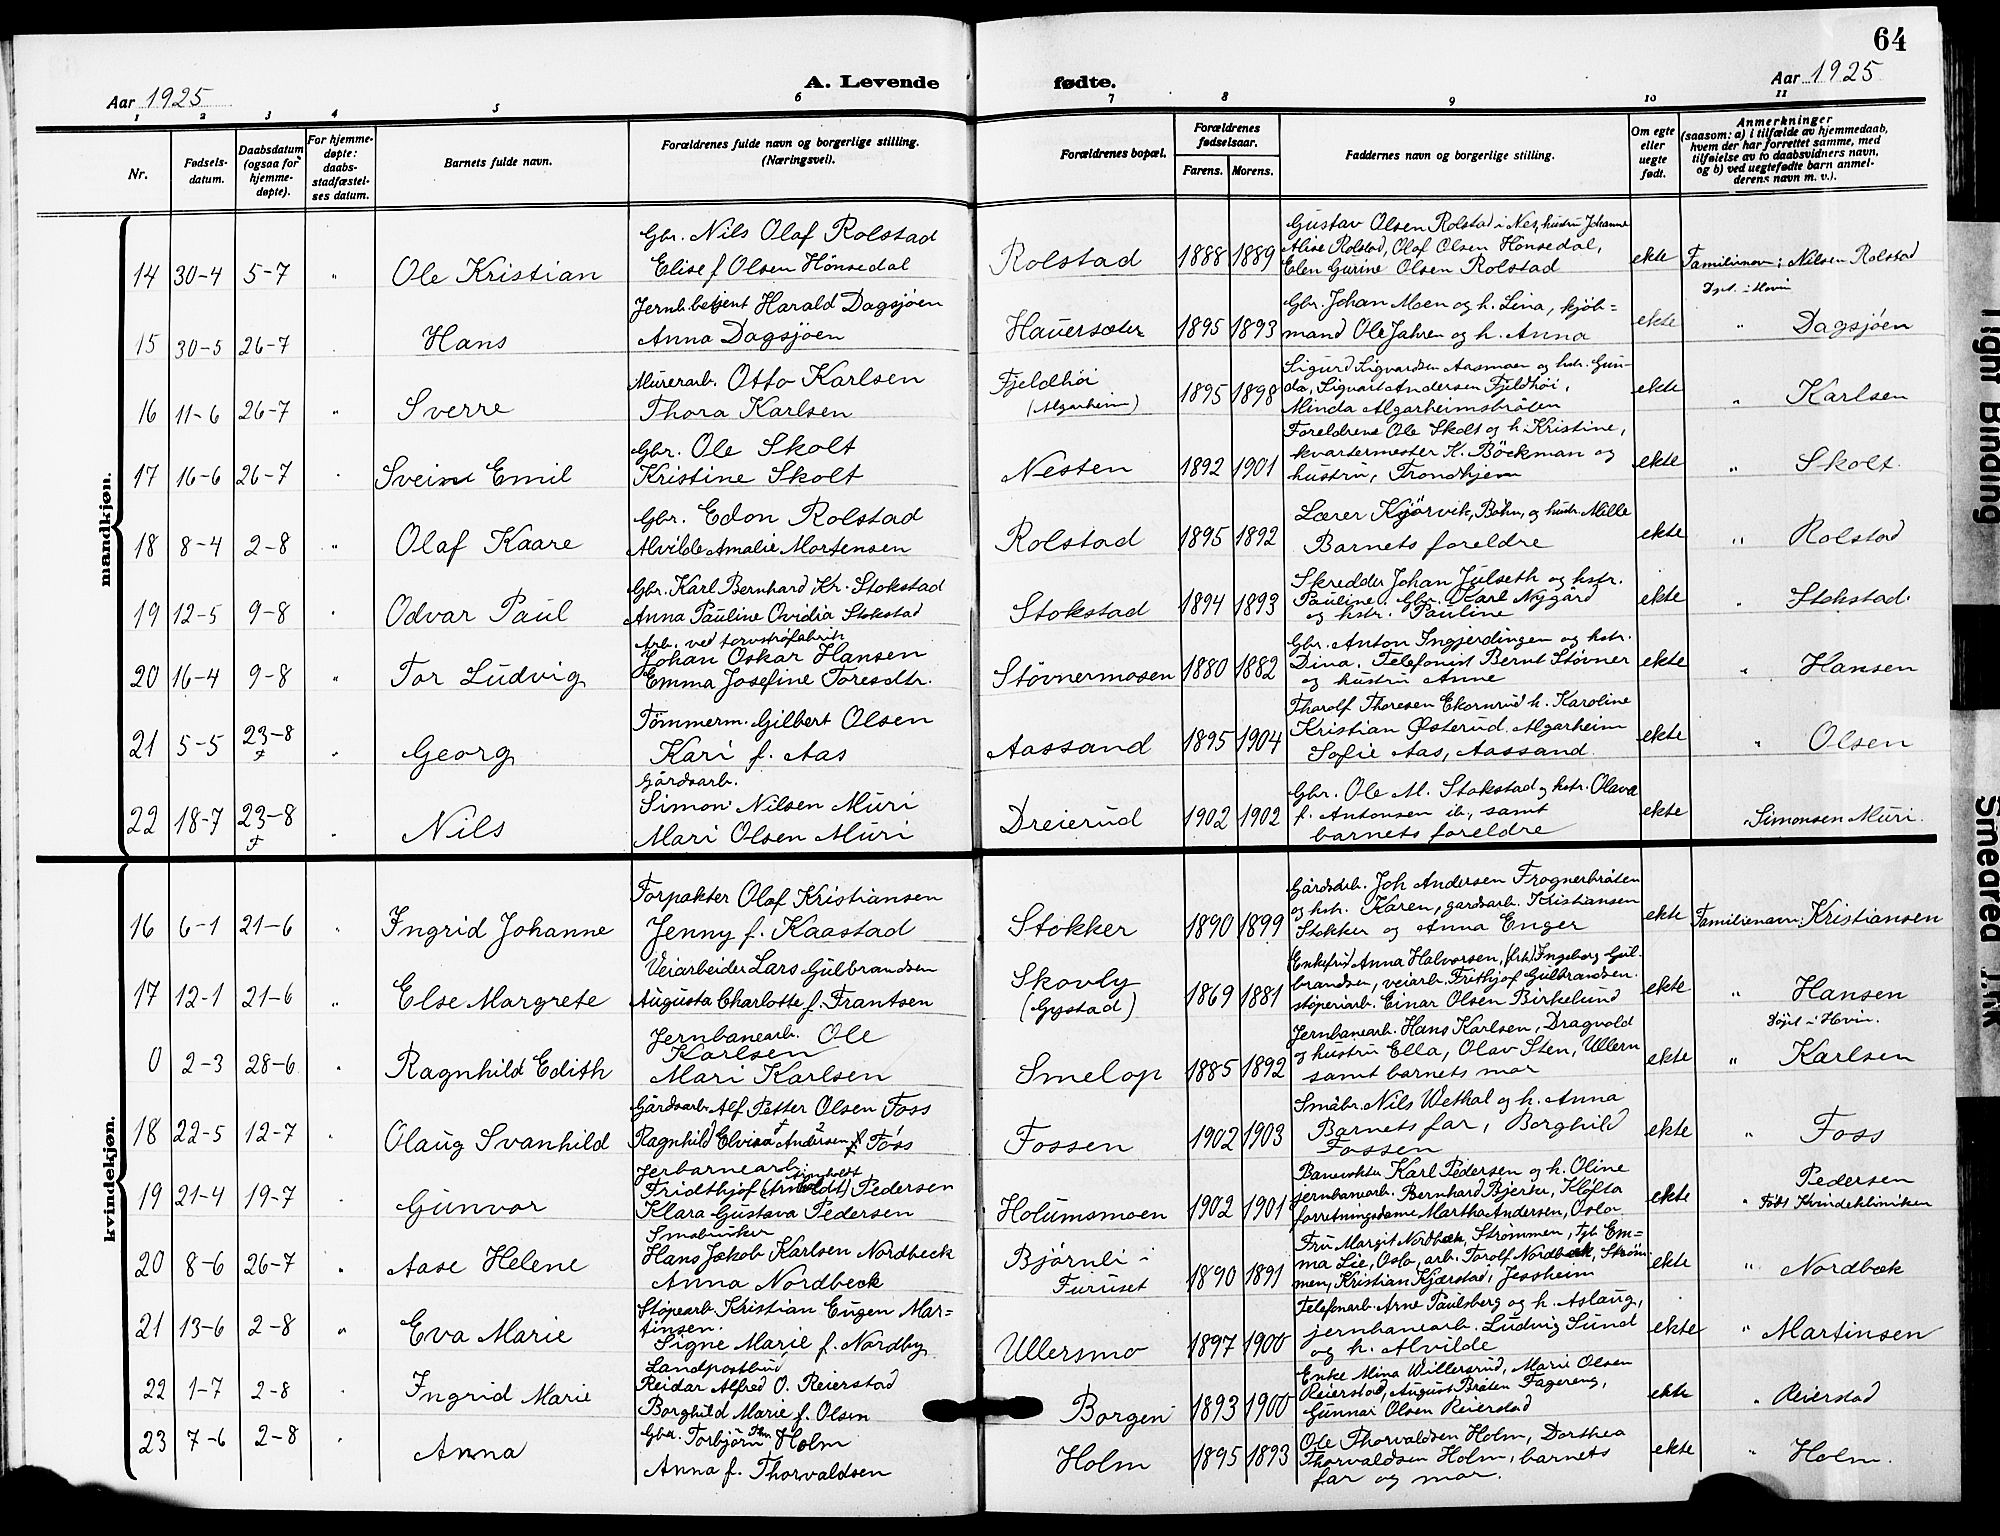 64
Aar 1925
A. Levende fødte.
Aar 1925
1 2 3 4 5 6 7 8 9 10 11
Nr.
Fødsels-
datum.
Daabsdatum
(ogsaa for
hjemme-
døpte).
For hjemme-
døpte:
daabs-
stadfæstel-
ses datum.
Barnets fulde navn.
Forældrenes fulde navn og borgerlige stilling.
(Næringsvei).
Forældrenes bopæl.
Forældrenes
fødselsaar.
Farens. Morens.
Faddernes navn og borgerlige stilling.
Om egte
eller
uegte
født.
Anmerkninger
(saasom: a) i tilfælde av hjemmedaab,
hvem der har forrettet samme, med
tilføielse av to daabsvidners navn,
og b) ved uegtefødte barn anmel-
derens navn m. v.).
mandkjøn.
14 30-4 5-7 " Ole Kristian
Gbr. Nils Olaf Rolstad
Elise f. Olsen Hønsedal
Rolstad 1888 1889
Gustav Olsen Rolstad i Nes, hustru Johanne
Alise Rolstad, Olaf Olsen Hønsedal,
Elen Gurine Olsen Rolstad
ekte Familienavn: Nilsen Rolstad
Døpt i Hovin
15 30-5 26-7 Hans
Jernb.betjent Harald Dagsjøen
Anna Dagsjøen
Hauersæter 1895 1893
Gbr. Johan Moen og h. Lina, kjøb=
mand Ole Jahren og h. Anna
ekte " Dagsjøen
16 11-6 26-7 " Sverre
Murerarb. Otto Karlsen
Thora Karlsen
Fjeldhøi
(Algarheim)
1895 1898
Sigurd Sigvardsen Aasmoen og hstr. Gun-
da, Sigvart Andersen Fjeldhøi,
Minda Algarheimsbråten
ekte " Karlsen
17 16-6 26-7 " Svein Emil
Gbr. Ole Skolt
Kristine Skolt
Nesten 1892 1901
Foreldrene Ole Skolt og h. Kristine,
kvartermester K. Böckman og
hustru, Trondhjem
ekte " Skolt.
18 8-4 2-8 " Olaf Kaare
Gbr. Edon Rolstad
Alvilde Amalie Mortensen
Rolstad 1895 1892
Lærer Kjørvik, Bøhn, og hustr. Mille
Barnets foreldre
ekte " Rolstad
19 12-5 9-8 " Odvar Paul
Gbr. Karl Bernhard Kr. Stokstad
Anna Pauline Ovidia Stokstad
Stokstad 1894 1893
Skredder Johan Julseth og hstr.
Pauline. Gbr. Karl Nygård
og hstr. Pauline
ekte " Stokstad.
20 16-4 9-8 " Tor Ludvig
Arb. ved torvstrøfabrik
Johan Oskar Hansen
Emma Josefine Toresdtr.
Støvnermosen 1880 1882
Gbr. Anton Ingjerdingen og hstr.
Dina. Telefonist Bernt Støvner
og hustru Anne
ekte " Hansen
21 5-5 23-8
F
" Georg
Tømmerm. Gilbert Olsen
Kari f. Aas
Aassand 1895 1904
Tharolf Thoresen Ekornrud h. Karoline
Kristian Østerud Algarheim
Sofie Aas, Aassand.
ekte " Olsen
22 18-7 23-8
F
" Nils
Gårdsarb.
Simon Nilsen Muri
Mari Olsen Muri
Dreierud 1902 1902
Gbr. Ole M. Stokstad og hstr. Olava
f. Antonsen ib., samt
barnets foreldre
ekte " Simonsen Muri.
kvindekjøn.
16 6-1 21-6 " Ingrid Johanne
Forpakter Olaf Kristiansen
Jenny f. Kaastad
Stokker 1890 1899
Gårdsarb. Joh Andersen Frognerbråten
og hstr. Karen, gardsarb. Kristiansen
Stokker og Anna Enger
ekte Familienavn: Kristiansen
17 12-1 21-6 " Else Margrete
Veiarbeider Lars Gulbrandsen
Augusta Charlotte f. Frantsen
Skovly
(Gystad)
1869 1881
(Enkefru) Anna Halvorsen, (frk) Ingeborg Gul-
brandsen, veiarb. Frithjof Gulbrandsen.
støperiarb. Einar Olsen Birkelund
ekte " Hansen
Døpt i Hovin.
0 2-3 28-6 " Ragnhild Edith
Jernbanearb. Ole
Karlsen
Mari Karlsen
Smelop 1885 1892
Jernbanearb. Hans Karlsen, Dragvold
og hustru Ella, Olav Sten, Ullern
samt barnets mor
ekte " Karlsen
18 22-5 12-7 " Olaug Svanhild
Gårdsarb. Alf Petter Olsen Foss
Ragnhild Elvira Andersen f. Foss
Fossen 1902 1903
Småbr. Nils Wethal og h. Anna
Barnets far, Borghild
Fossen
ekte " Foss
19 21-4 19-7 " Gunvor
Jerbanearb.
Fridthjof (Arnholdt) Pedersen
Klara Gustava Pedersen
Holumsmoen 1902 1901
Banevokter Karl Pedersen og h. Oline
jernbanearb. Bernhard Bjerke, Kløfta
forretningsdame Martha Andersen, Oslo
ekte " Pedersen
Født Kvindeklinikken
20 8-6 26-7 " Aase Helene
Småbruker
Hans Jakob Karlsen Nordbeck
Anna Nordbeck
Bjørnli i
Furuset
1890 1891
Fru Margit Nordbæk, Strømmen, Em=
ma Lie, Oslo, arb. Torolf Nordbæk, Strøm
men, Kristian Kjærstad, Jessheim
ekte " Nordbæk
21 13-6 2-8 " Eva Marie
Støpearb. Kristian Eugen Mar=
tinsen.
Signe Marie f. Nordby
Ullersmo 1897 1900
Telefonarb. Arne Paulsberg og h. Aslaug,
jernbanearb. Ludvig Sund
og h. Alvilde
ekte " Martinsen
22 1-7 2-8 " Ingrid Marie
Landpostbud
Reidar Alfred O. Reierstad
Borghild Marie f. Olsen
Borgen 1893 1900
Enke Mina Willersrud, Marie Olsen
Reierstad, August Bråten Fagereng,
Gunnar Olsen Reierstad
ekte " Reierstad
23 7-6 2-8 " Anna
Gbr. Torbjørn Th. Holm
Anna f. Thorvaldsen
Holm 1895 1893
Ole Thorvaldsen Holm, Dorthea
Thorvaldsen Holm, barnets
far og mor.
ekte " Holm.
Tight Binding
Smeared Ink